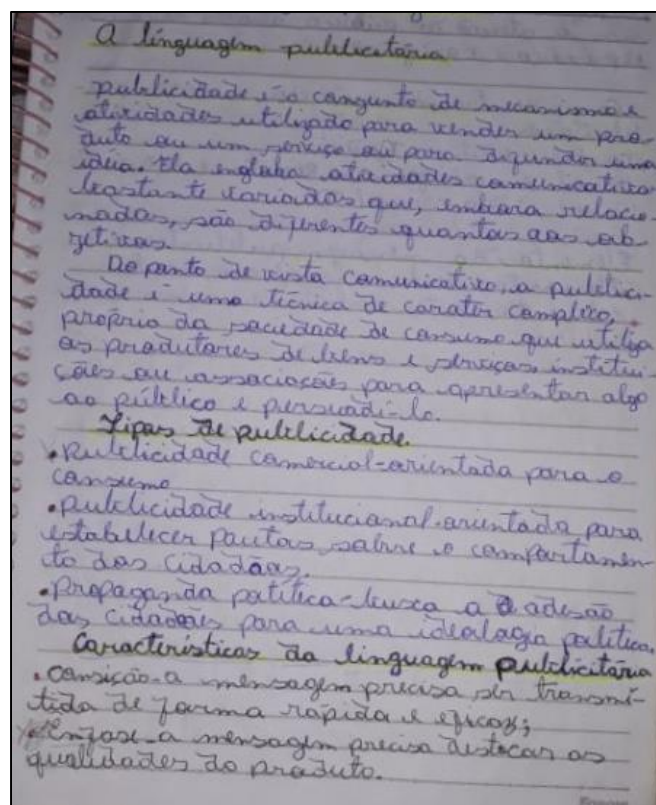 A linguagem publicitária
publicidade é o conjunto de mecanismo e
atividades utilizado para vender um pro-
duto ou um serviço ou para difundir uma
idéia. Ela engloba atividades comunicativa
bastante variadas que, embora relacio-
nadas, são diferentes quantos aos ob-
jetivos.
Do ponto de vista comunicativo, a publici-
dade é uma técnica de carater complexo,
próprio da sociedade de consumo que utiliza
os produtores de bens e serviços, institui-
ções ou associações para apresentar algo
ao público e persuadi-lo.
Tipos de publicidade.
• Publicidade comercial-orientada para o
consumo
• publicidade institucional-orientada para
estabelecer pautas sobre o comportamen-
to dos cidadãos.
• Propaganda política-busca a adesão
dos cidadãos para uma idealogia política.
Características da linguagem publicitária
• consição-a mensagem precisa ser transmi-
tida de forma rápida e eficaz;
• ênfase-a mensagem precisa destacar as
qualidades do produto.